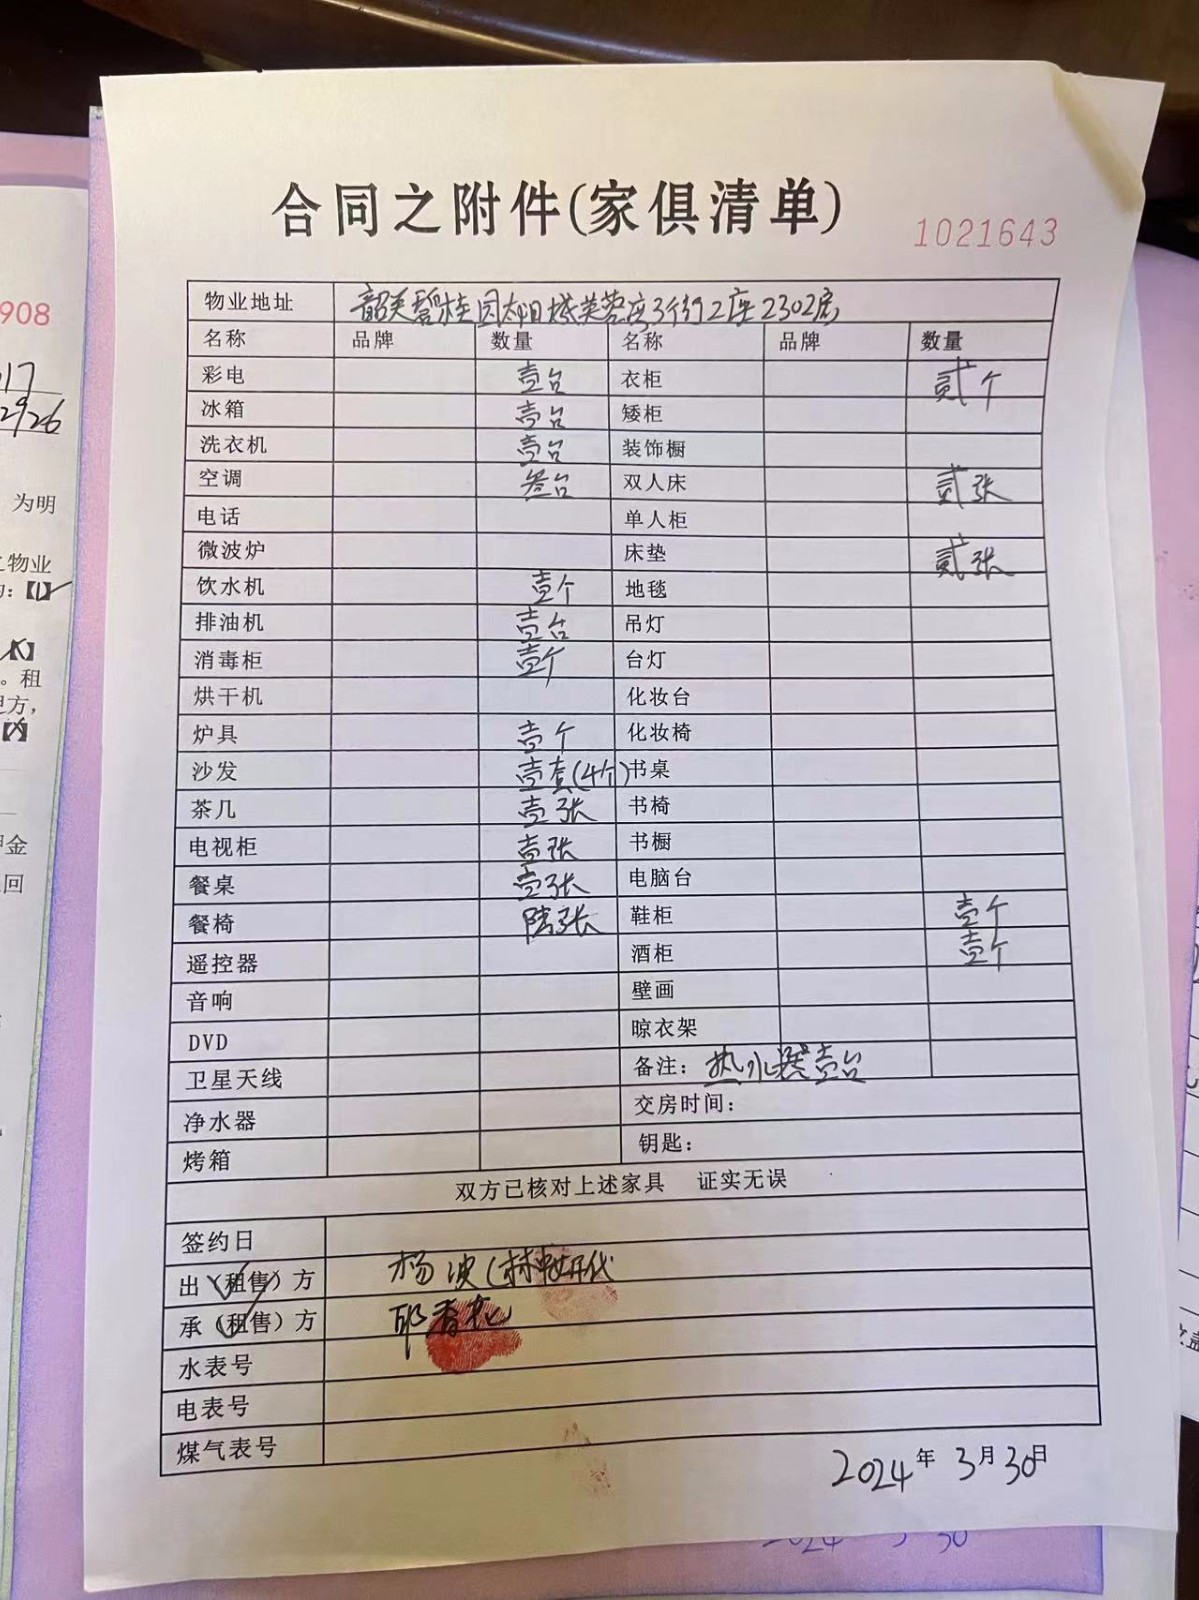 合同之附件(家俱清单)
1021643
物业地址 韶关碧桂园太阳城芙蓉度3街2座2302房
名称 品牌 数量 名称 品牌 数量
彩电 壹台 衣柜 贰个
冰箱 壹台 矮柜
洗衣机 壹台 装饰橱
空调 叁台 双人床 贰张
电话 单人柜
微波炉 床垫 贰张
饮水机 壹个 地毯
排油机 壹台 吊灯
消毒柜 壹个 台灯
烘干机 化妆台
炉具 壹个 化妆椅
沙发 壹套(4个) 书桌
茶几 壹张 书椅
电视柜 壹张 书橱
餐桌 壹张 电脑台
餐椅 陆张 鞋柜 壹个
遥控器 酒柜 壹个
音响 壁画
DVD 晾衣架
卫星天线 备注: 热水器壹台
净水器 交房时间:
烤箱 钥匙:
双方已核对上述家具 证实无误
签约日
出(租售)方 杨波(林
承(租售)方 邱春花
水表号
电表号
煤气表号
2024年3月30日
908
17
2926
为明
物业
【1】
。租
方,
金
回
2024 3 30